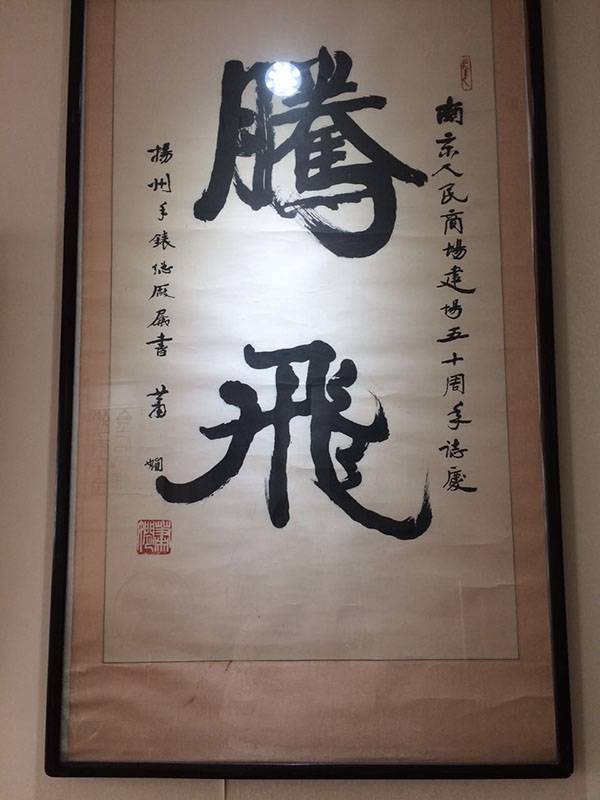 南京人民商場建場五十周年誌慶
騰飛
揚州手錶總厰屬書 蕭嫻
蕭嫻